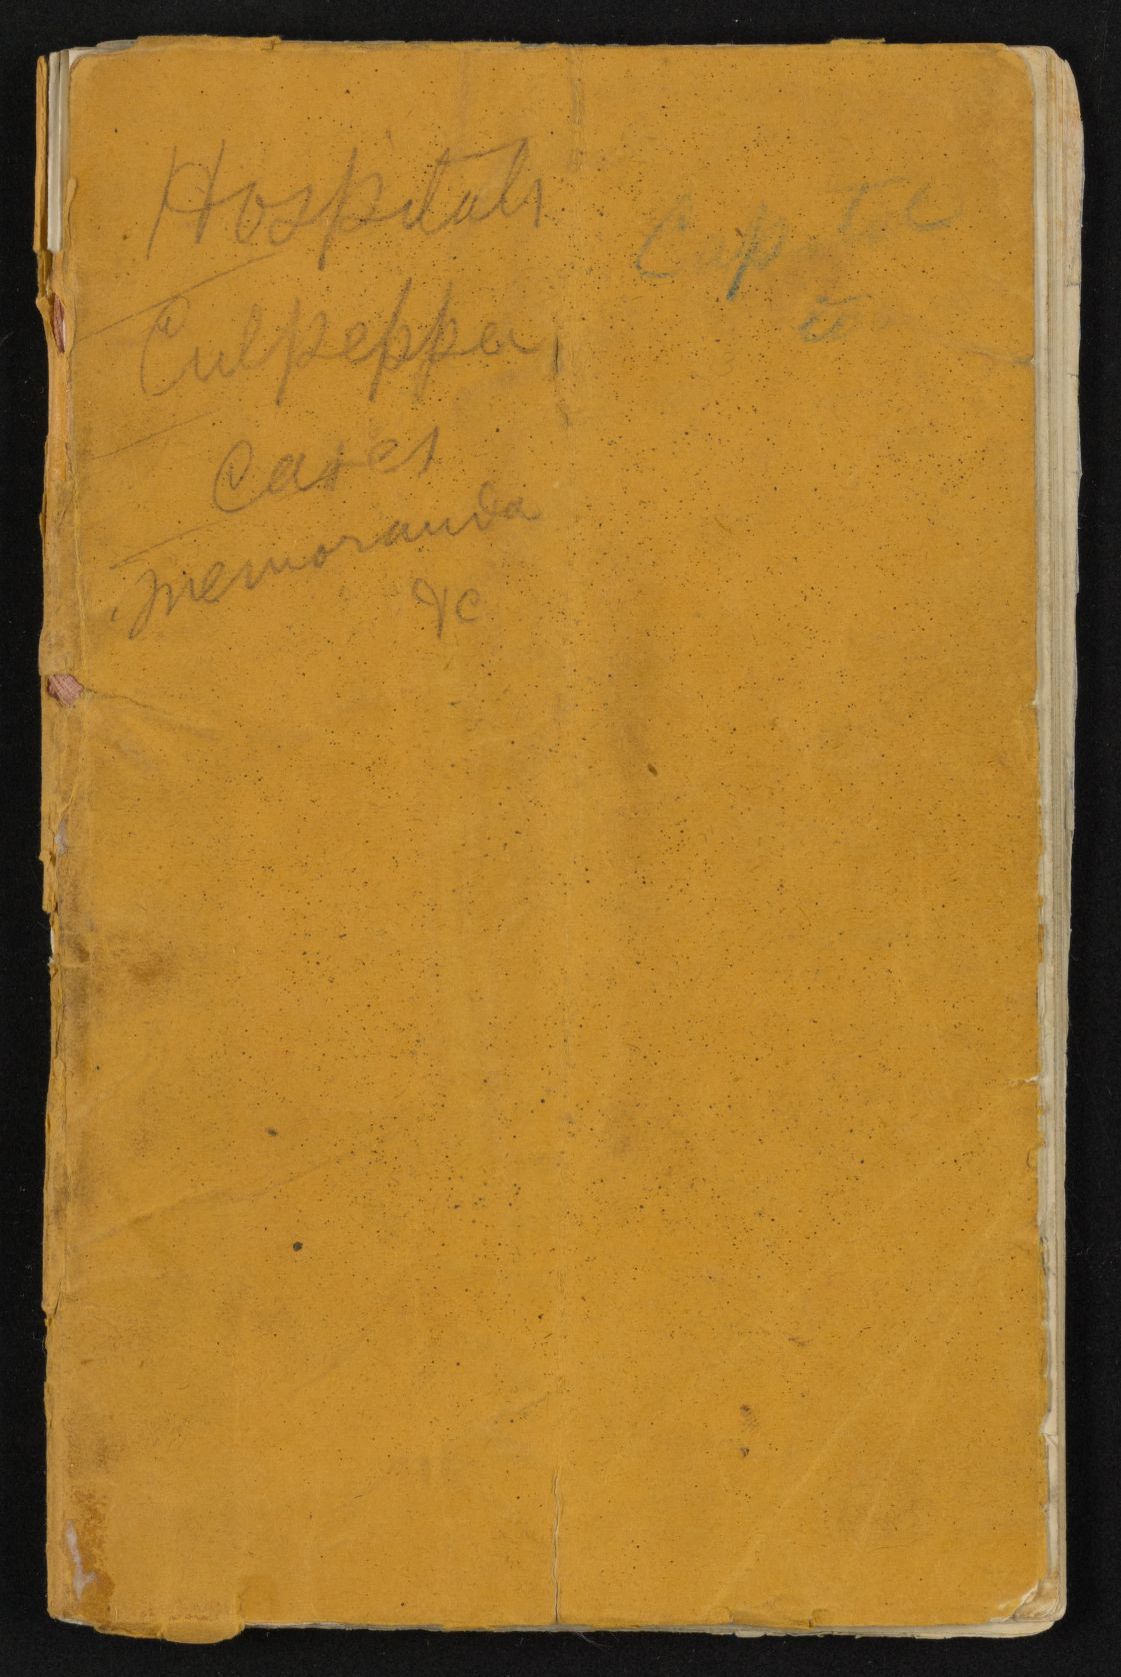 Hospitals
Culpepper
Cases
memoranda
&c
Capitol